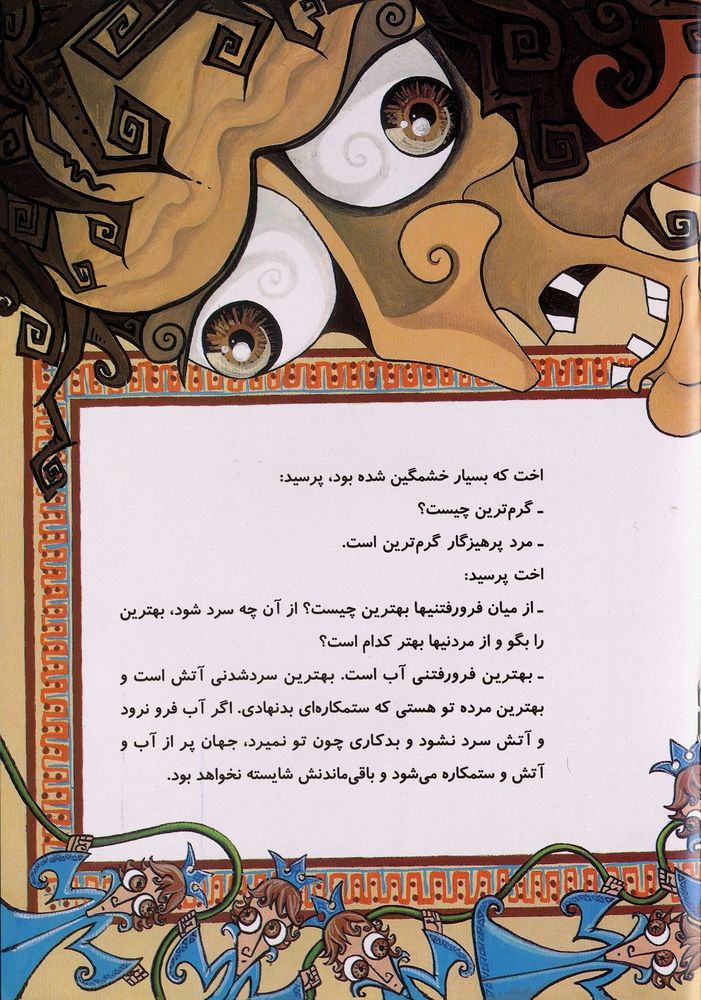 اخت که بسیار خشمگین شده بود، پرسید:
ـ گرم‌ترین چیست؟
ـ مرد پرهیزگار گرم‌ترین است.
اخت پرسید:
ـ از میان فرورفتنیها بهترین چیست؟ از آن چه سرد شود، بهترین
را بگو و از مردنیها بهتر کدام است؟
ـ بهترین فرورفتنی آب است. بهترین سردشدنی آتش است و
بهترین مرده تو هستی که ستمکاره‌ای بدنهادی. اگر آب فرو نرود
و آتش سرد نشود و بدکاری چون تو نمیرد، جهان پر از آب و
آتش و ستمکاره می‌شود و باقی‌ماندنش شایسته نخواهد بود.